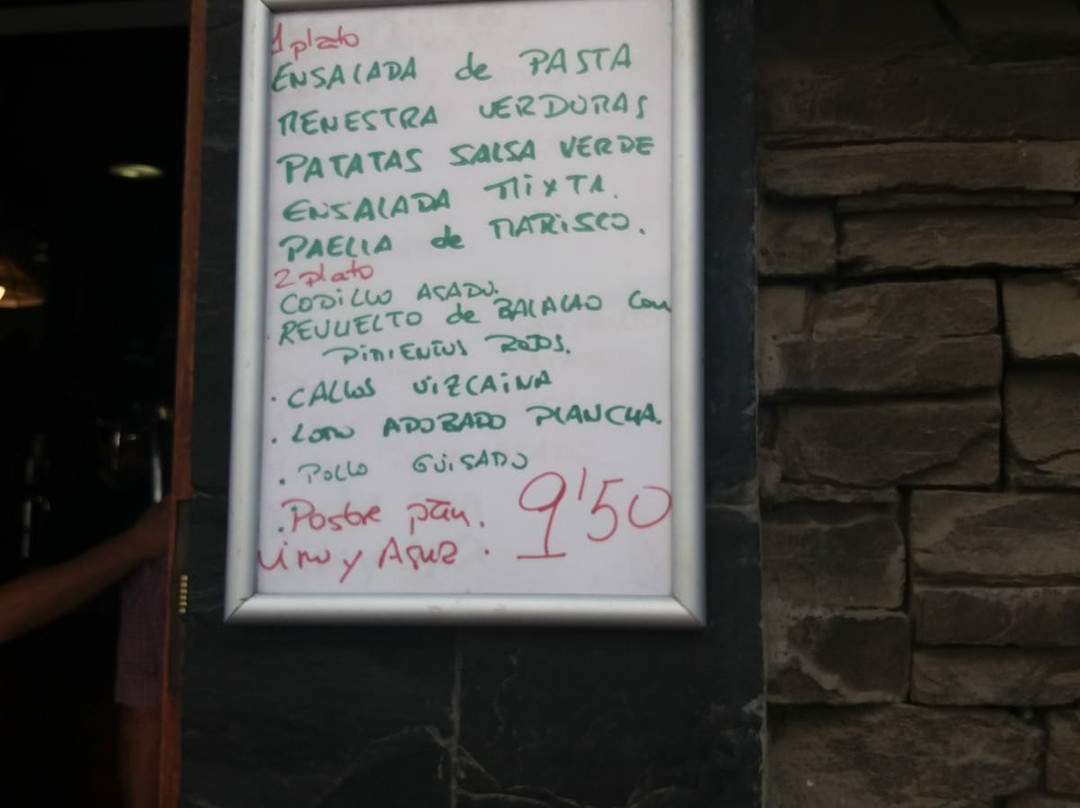 1 plato
ENSALADA de PASTA
MENESTRA VERDURAS
PATATAS SALSA VERDE
ENSALADA MIXTA.
PAELLA de MARISCO.
2 plato
CODILLO ASADO.
. REVUELTO de BACALAO con
PIMIENTOS ROJOS.
. CALLOS VIZCAINA
. LOMO ADOBADO PLANCHA.
. POLLO GUISADO
. Postre pan. 9'50
Vino y Agua.